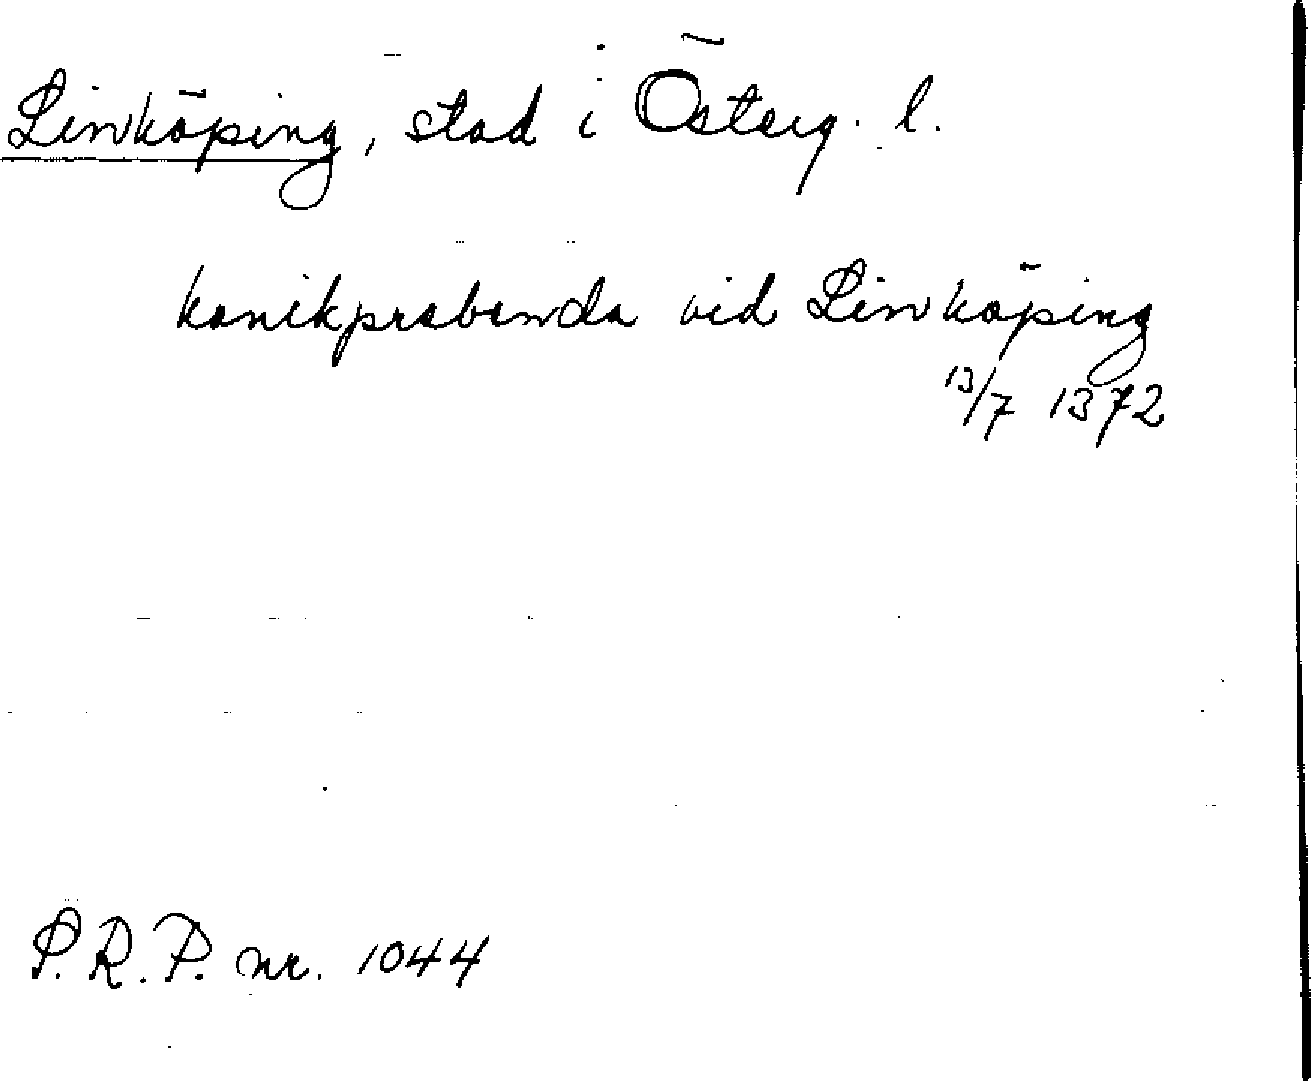 Linköping, stad i Österg. l.
kanikprebenda vid Linköping
13/7 1372
P.R.P. nr. 1044